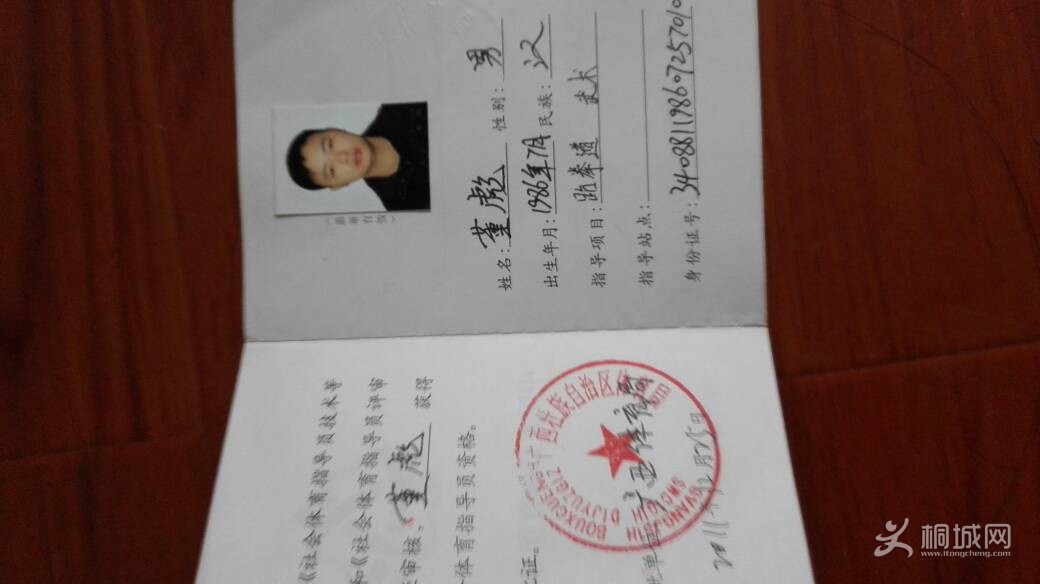 《社会体育指导员技术等
和《社会体育指导员评审
审核，董彪 获得
体育指导员资格。
证。
广西壮族自治区体育局
广西体育局
2011年12月15日
姓名：董彪 性别：男
出生年月：1986年7月 民族：汉
指导项目：跆拳道 武术
指导站点：
身份证号：34088119860725701
桐城网
www.itongcheng.com